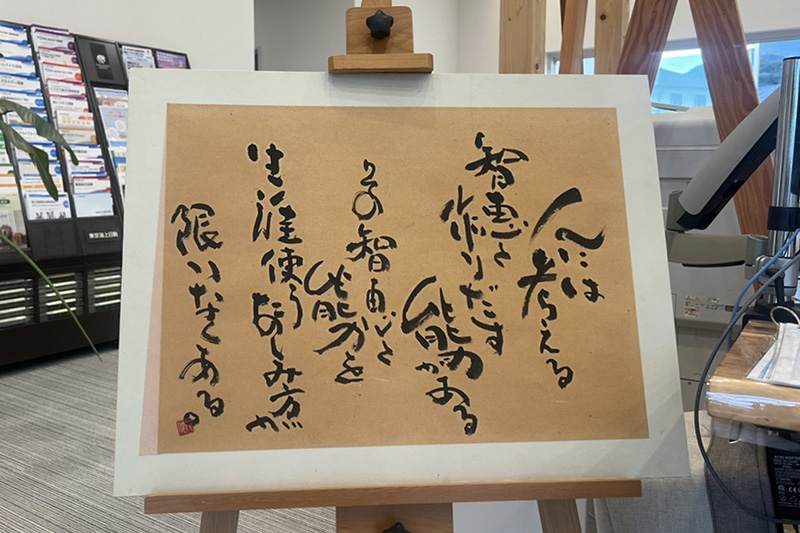 人には考える
智恵と作りだす
能力がある
その智恵と
能力を
生涯使う楽しみ方が
限りなくある
東京海上日動